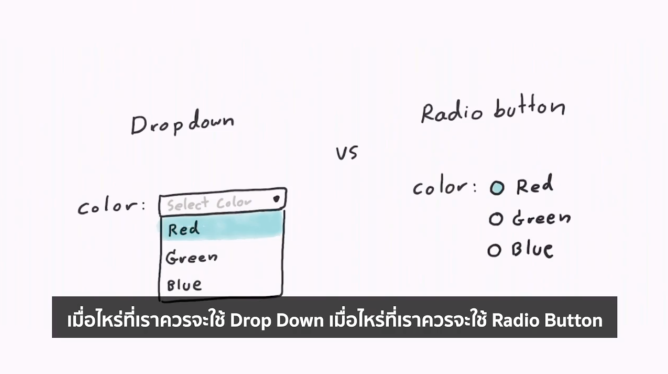 Dropdown
vs
Radio button
color: Select Color
Red
Green
Blue
color: Red
Green
Blue
เมื่อไหร่ที่เราควรจะใช้ Drop Down เมื่อไหร่ที่เราควรจะใช้ Radio Button